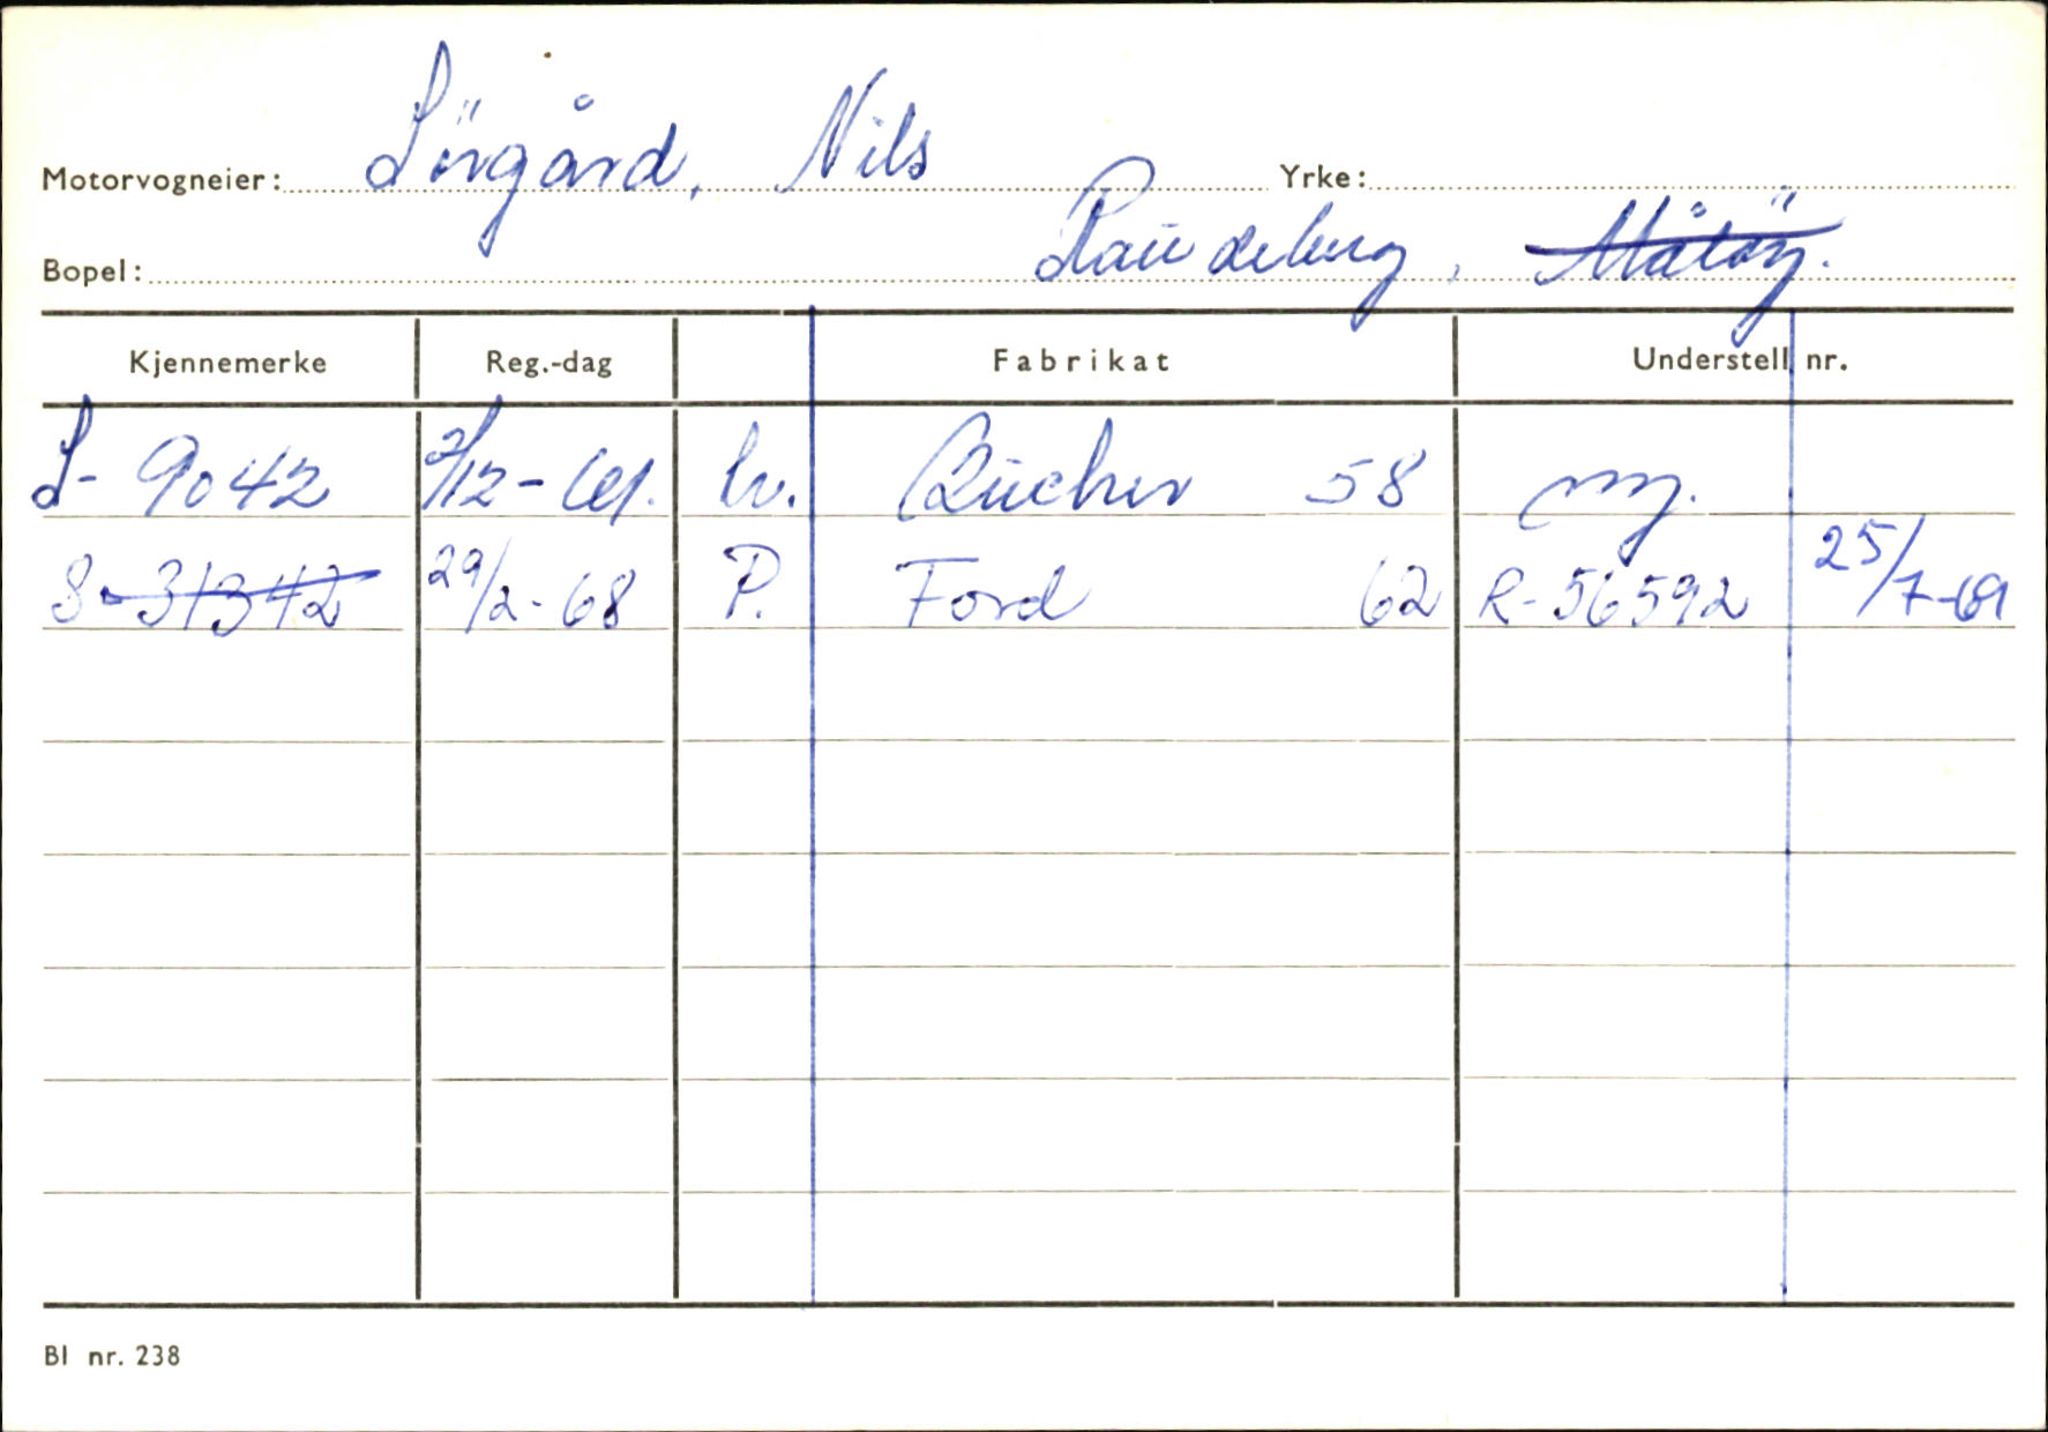 Motorvogneier: Sörgård, Nils Yrke:
Bopel: Raudeberg, Måløy.
Kjennemerke Reg.-dag Fabrikat Understell nr.
S- 9042 2/12-61. lv. Bücher 58
S-31342 29/2-68 P. Ford 62 R-56592 25/7-69
Bl nr. 238